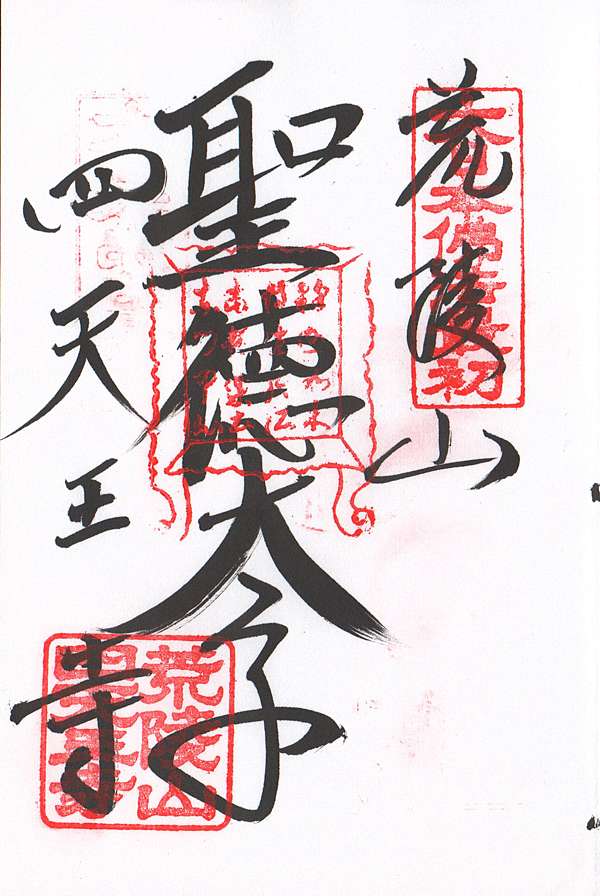 荒陵山
大日本佛法最初
聖徳太子
四天王寺
荒陵山
四天王寺